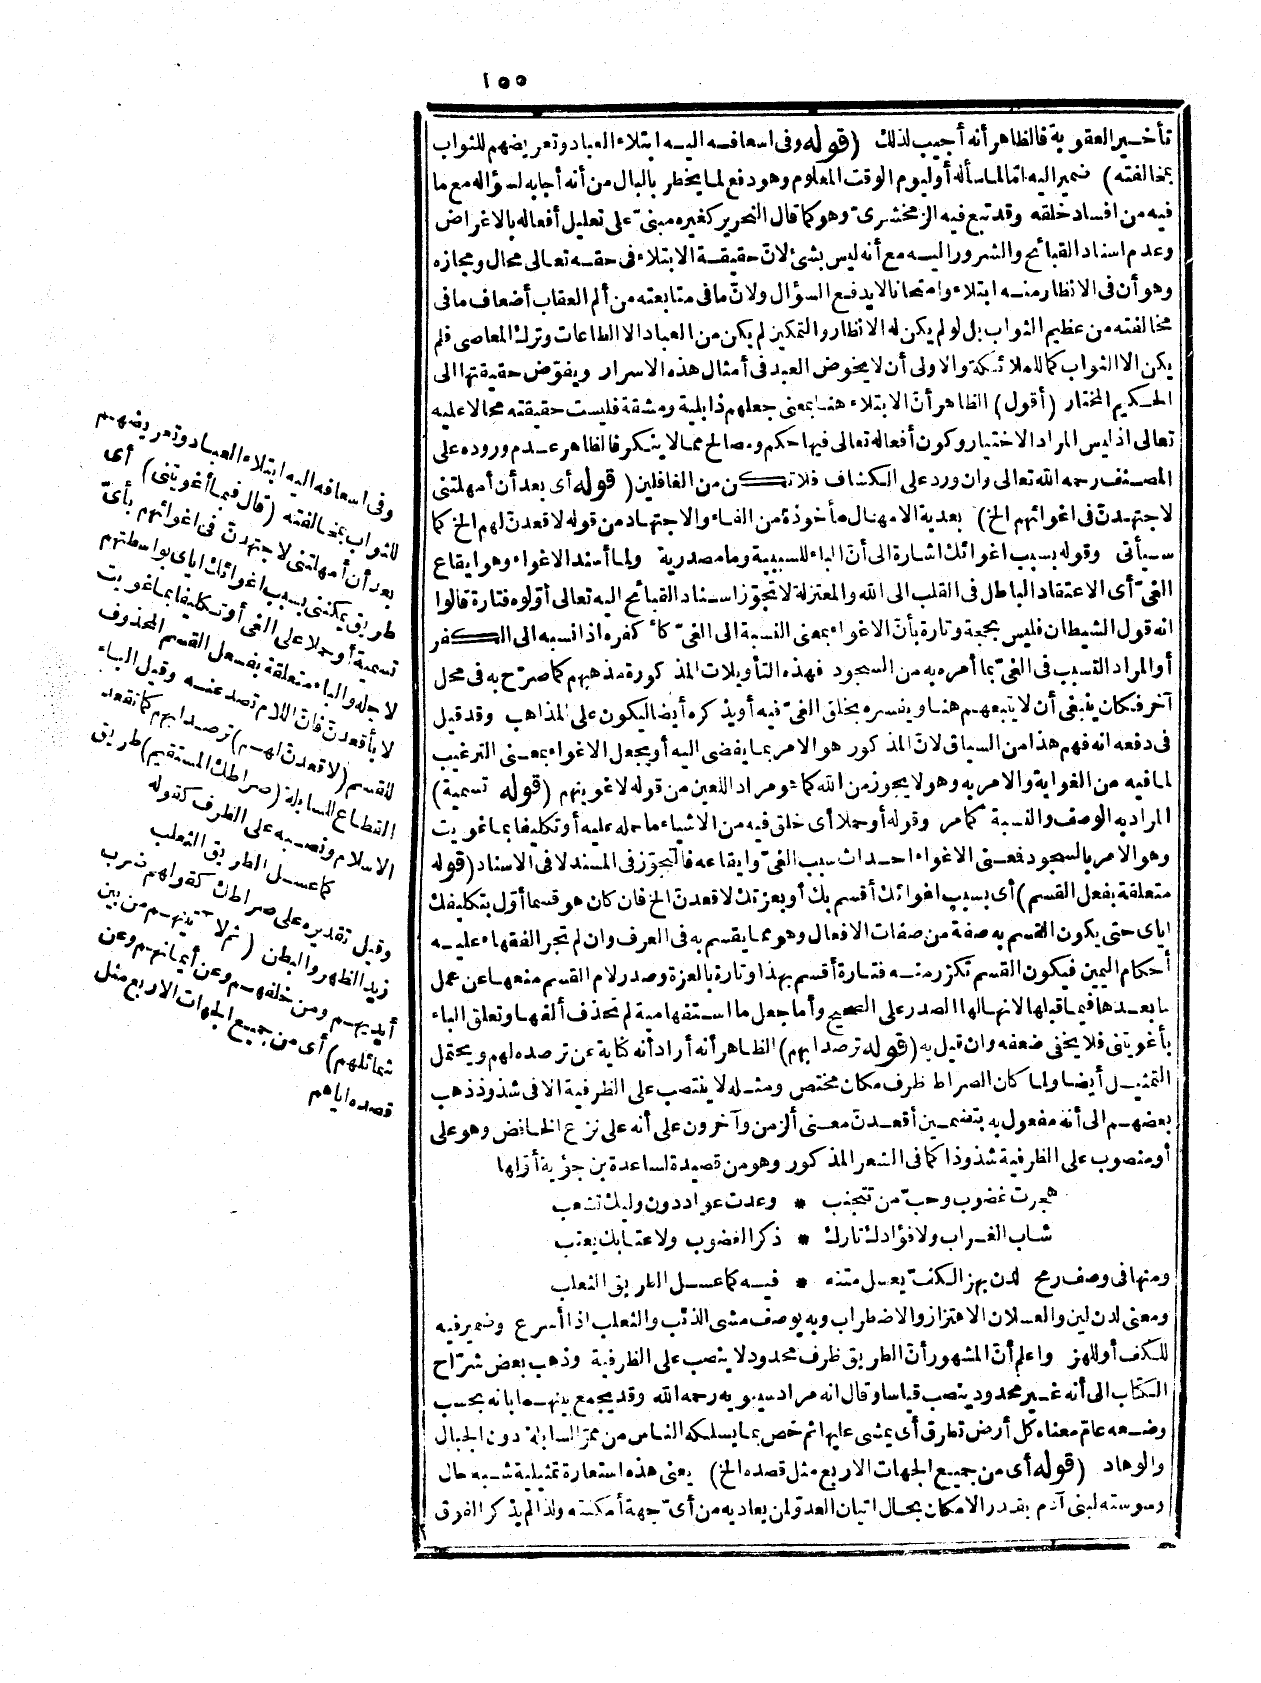 ١٥٥
تأخير العقوبة فالظاهر أنه أجيب لذلك (قوله وفى اسعافه اليه ابتلاء العباد وتعريضهم للثواب
بمخالفته) ضمير اليه امّا لما سأله أو ليوم الوقت المعلوم وهو دفع لما يخطر بالبال من أنه أجابه لسؤاله مع ما
فيه من افساد خلقه وقد تبع فيه الزمخشرىّ وهو كما قال النحرير كغيره مبنىّ على تعليل أفعاله بالاغراض
وعدم اسناد القبائح والشرور اليه مع أنه ليس بشئ لانّ حقيقة الابتلاء فى حقه تعالى محال ومجازه
وهو أن فى الانظار منه ابتلاء وامتحانا لا يدفع السؤال ولانّ ما فى متابعته من ألم العقاب أضعاف ما فى
مخالفته من عظيم الثواب بل لو لم يكن له الانظار والتمكين لم يكن من العباد الا الطاعات وترك المعاصى فلم
يكن الا الثواب كما للملائكة والاولى أن لا يخوض العبد فى أمثال هذه الاسرار ويفوّض حقيقتها الى
الحكيم المختار (أقول) الظاهر أنّ الابتلاء هنا بمعنى جعلهم ذا بلية ومشقة فليست حقيقته محالا عليه
تعالى اذ ليس المراد الاختيار وكون أفعاله تعالى فيها حكم ومصالح مما لا ينكر فالظاهر عدم وروده على
المصنف رحمه الله تعالى وان ورد على الكشاف فلا تكن من الغافلين (قوله أى بعد أن أمهلتنى
لاجتهدنّ فى اغوائهم الخ) بعدية الامهال مأخوذة من الفاء والاجتهاد من قوله لاقعدنّ لهم الخ كما
سيأتى وقوله بسبب اغوائك اشارة الى أنّ الباء للسببية وما مصدرية ولما أسند الاغواء وهو ايقاع
الغىّ أى الاعتقاد الباطل فى القلب الى الله والمعتزلة لا تجوّز اسناد القبائح اليه تعالى أوّلوه فتارة قالوا
انه قول الشيطان فليس بحجة وتارة بأنّ الاغواء بمعنى النسبة الى الغىّ كأكفره اذا نسبه الى الكفر
أو المراد التسبب فى الغىّ بما أمره به من السجود فهذه التأويلات المذكورة مذهبهم كما صرّح به فى محل
آخر فكان ينبغى أن لا يتبعهم هنا ويفسره بخلق الغىّ فيه أو يذكره أيضا ليكون على المذاهب وقد قيل
فى دفعه انه فهم هذا من السياق لانّ المذكور هو الامر بما يفضى اليه أو يجعل الاغواء بمعنى الترغيب
لما فيه من الغواية والامر به وهو لا يجوز من الله كما هو مراد اللعين من قوله لاغوينهم (قوله تسمية)
المراد به الوصف والنسبة كما مر وقوله أو حملا أى خلق فيه من الاشياء ما حمله عليه أو تكليفا بما غويت
وهو الامر بالسجود فمعنى الاغواء احداث سبب الغىّ وايقاعه فالتجوّز فى المسند لا فى الاسناد (قوله
متعلقة بفعل القسم) أى بسبب اغوائك أقسم بك أو بعزتك لاقعدنّ الخ فان كان هو قسما أوّل بتكليفك
اياى حتى يكون القسم به صفة من صفات الافعال وهو مما يقسم به فى العرف وان لم تجر الفقهاء عليه
أحكام اليمين فيكون القسم تكرّر منه فتارة أقسم بهذا وتارة بالعزة وصدر لام القسم منعها عن عمل
ما بعدها فيما قبلها لانها لها الصدر على الصحيح وأما جعل ما استفهامية لم تحذف ألفها وتعلق الباء
بأغويتنى فلا يخفى ضعفه وان قيل به (قوله ترصدا بهم) الظاهر أنه أراد أنه كناية عن ترصده لهم ويحتمل
التمثيل أيضا ولما كان الصراط ظرف مكان مختص ومثله لا ينتصب على الظرفية الا فى شذوذ ذهب
بعضهم الى أنه مفعول به بتضمين أقعدنّ معنى ألزمن وآخرون على أنه على نزع الخافض وهو على
أو منصوب على الظرفية شذوذا كما فى الشعر المذكور وهو من قصيدة لساعدة بن جؤية أوّلها
هجرت غضوب وحبّ من تتجنب * وعدت عواد دون وليك تشعب
شاب الغراب ولا فؤادك تارك * ذكر الغضوب ولا عتابك يعتب
ومنها فى وصف رمح لدن بهز الكفّ يعسل متنه * فيه كما عسل الطريق الثعلب
ومعنى لدن لين والعسلان الاهتزاز والاضطراب وبه يوصف مشى الذئب والثعلب اذا أسرع وضمير فيه
للكف أو للهز واعلم أنّ المشهور أنّ الطريق ظرف محدود لا ينصب على الظرفية وذهب بعض شرّاح
الكتاب الى أنه غير محدود ينصب قياسا وقال انه مراد سيبويه رحمه الله وقد يجمع بينهما بانه بحسب
وضعه عامّ معناه كل أرض تطرق أى يمشى عليها ثم خص بما يسلكه الناس من ممرّ السابلة دون الجبال
والوهاد (قوله أى من جميع الجهات الاربع مثل قصده الخ) يعنى هذه استعارة تمثيلية شبه حال
وسوسته لبنى آدم بقدر الامكان بحال اتيان العدوّ لمن يعاديه من أىّ جهة أمكنته ولذا لم يذكر الفوق
وفى اسعافه اليه ابتلاء العباد وتعريضهم
للثواب بمخالفته (قال فبما أغويتنى) أى
بعد أن أمهلتنى لاجتهدنّ فى اغوائهم بأىّ
طريق يمكننى بسبب اغوائك اياى بواسطتهم
تسمية أو حملا على الغى أو تكليفا بما غويت
لاجله والباء متعلقة بفعل القسم المحذوف
لا بأقعدنّ فانّ اللام تصد عنه وقيل الباء
للقسم (لاقعدنّ لهم) ترصدا بهم كما تقعد
القطاع للسابلة (صراطك المستقيم) طريق
الاسلام ونصبه على الظرف كقوله
كما عسل الطريق الثعلب
وقيل تقديره على صراطك كقولهم ضرب
زيد الظهر والبطن (ثم لآتينهم من بين
أيديهم ومن خلفهم وعن أيمانهم وعن
شمائلهم) أى من جميع الجهات الاربع مثل
قصده اياهم